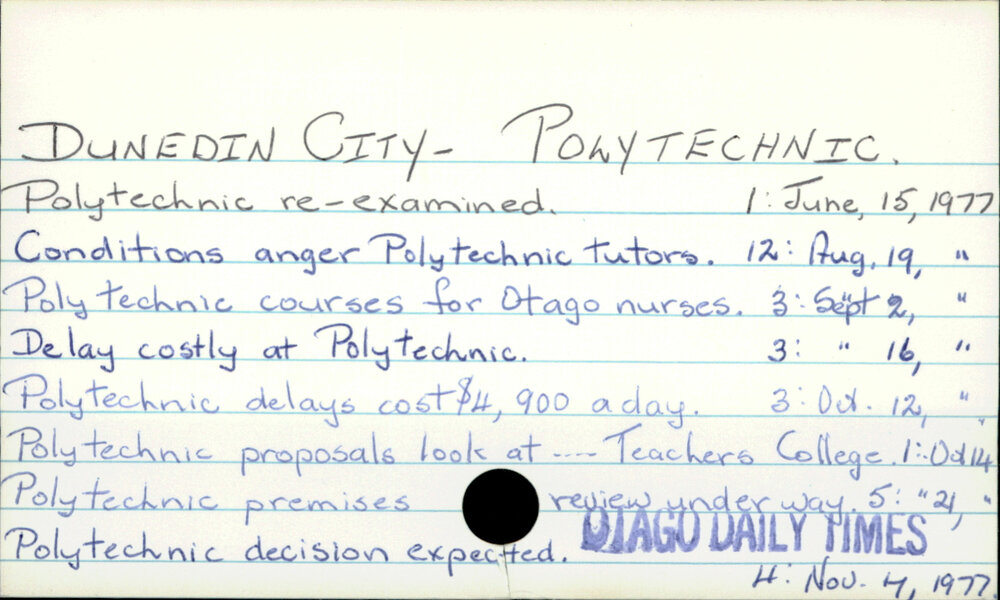 DUNEDIN CITY- POLYTECHNIC.
Polytechnic re-examined. 1: June, 15, 1977
Conditions anger Polytechnic tutors. 12: Aug. 19, "
Polytechnic courses for Otago nurses. 3: Sept 2, "
Delay costly at Polytechnic. 3: " 16, "
Polytechnic delays cost $4,900 a day. 3: Oct. 12, "
Polytechnic proposals look at ---- Teachers College. 1: Oct 14 "
Polytechnic premises review under way. 5: " 21, "
OTAGO DAILY TIMES
Polytechnic decision expected.
4: Nov. 4, 1977